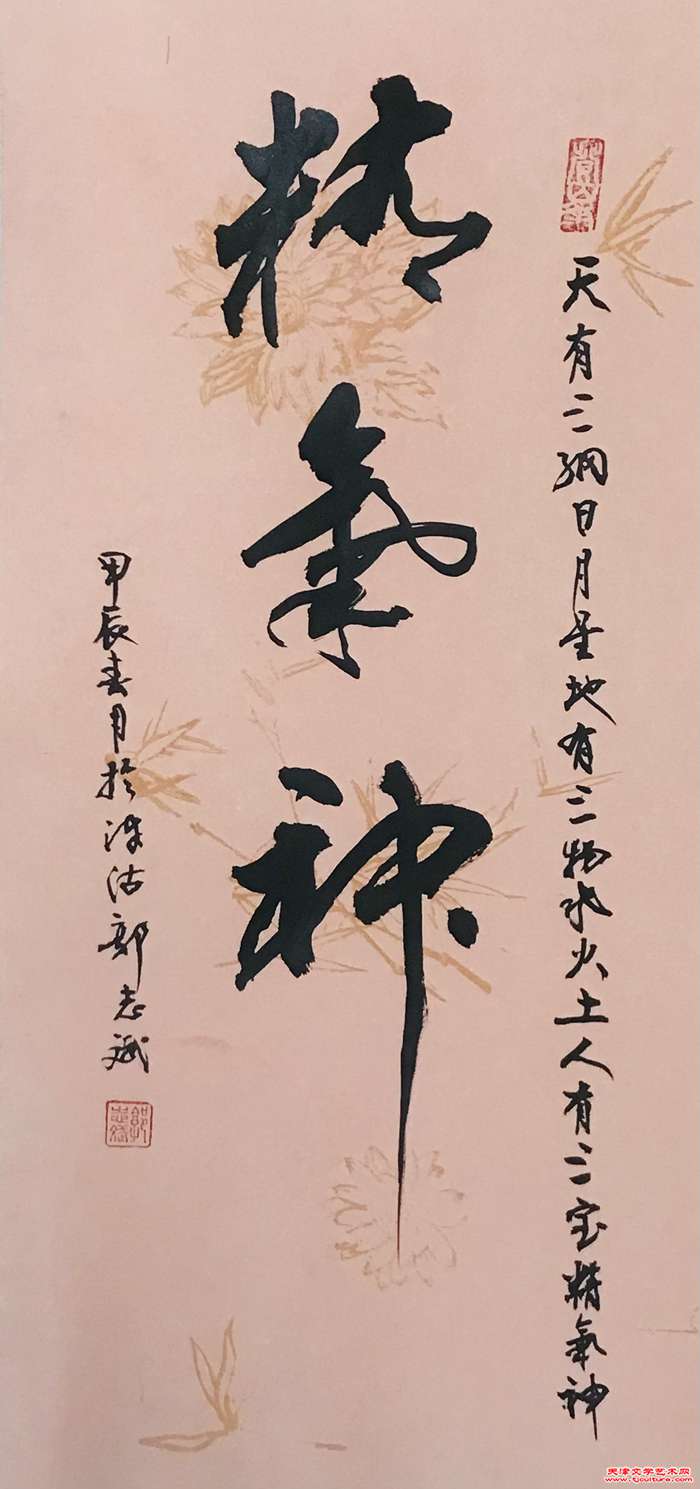 天有三纲日月星地有三物水火土人有三宝精氣神
精氣神
甲辰春月於津沽郭志斌
郭志斌
天津文学艺术网
www.tjculture.com